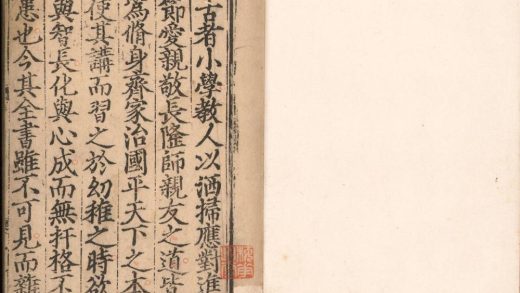 古者小學教人以洒掃應對進
節愛親敬長隆師親友之道皆
爲脩身齊家治國平天下之本
使其講而習之於㓜稚之時欲
與智長化與心成而無扞格不
患也今其全書雖不可見而雜